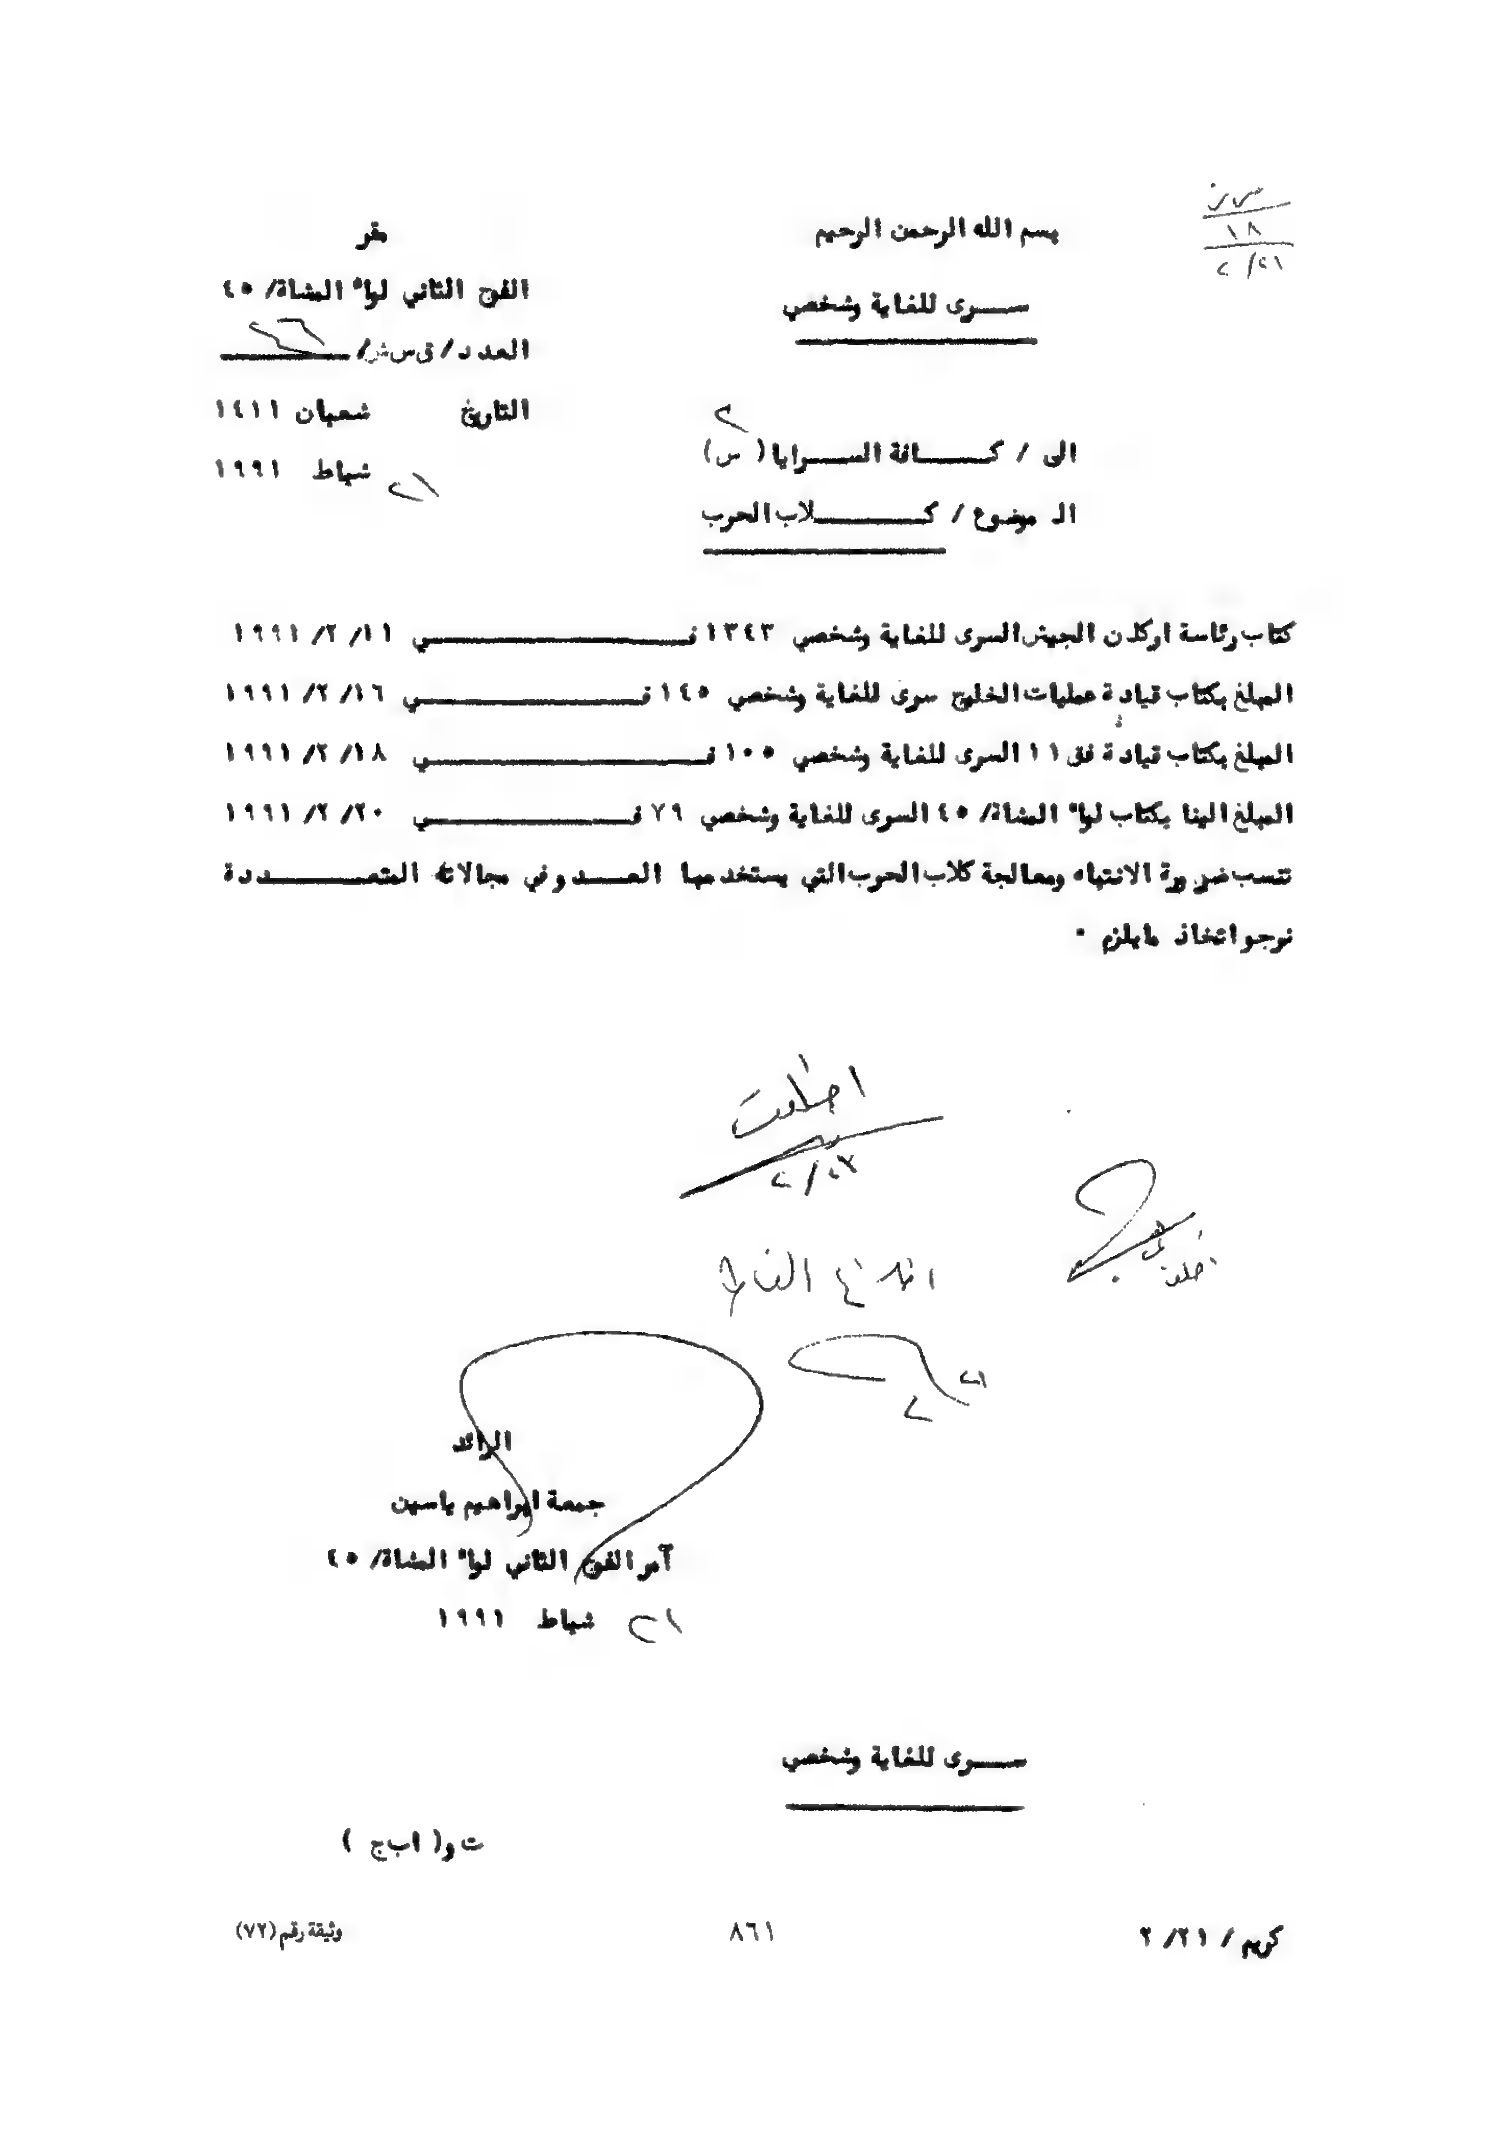 بسم الله الرحمن الرحيم
ســـرى للغاية وشخصي
مقر
الفوج الثاني لواء المشاة/ ٤٥
العدد/ ق س ش/ ٢٦
التاريخ شعبان ١٤١١
٢١ شباط ١٩٩١
١٨
٢/٢١
الى / كـــافة الســـرايا( س)
الـ موضوع/ كـــــلاب الحرب
كتاب رئاسة اركان الجيش السرى للغاية وشخصي ١٣٤٣ فــــــــي ١١/ ٢/ ١٩٩١
المبلغ بكتاب قيادة عمليات الخليج سرى للغاية وشخصي ١٤٥ فــــــــي ١٦/ ٢/ ١٩٩١
المبلغ بكتاب قيادة فق ١١ السرى للغاية وشخصي ١٠٥ فــــــــي ١٨/ ٢/ ١٩٩١
المبلغ الينا بكتاب لواء المشاة/ ٤٥ السرى للغاية وشخصي ٧٩ فــــــــي ٢٠/ ٢/ ١٩٩١
تنسب ضرورة الانتباه ومعالجة كلاب الحرب التي يستخدمها العـــدو في مجالات المتعـــــددة
نرجو اتخاذ مايلزم ٠
اطلعت
٢/٢٣
٢١
٢
الرائد
جمعة ابراهيم ياسين
آمر الفوج الثاني لواء المشاة/ ٤٥
٢١ شباط ١٩٩١
ســـرى للغاية وشخصي
ت و( ا ب ج )
كريم / ٢١/ ٢
٨٦١
وثيقة رقم (٧٢)